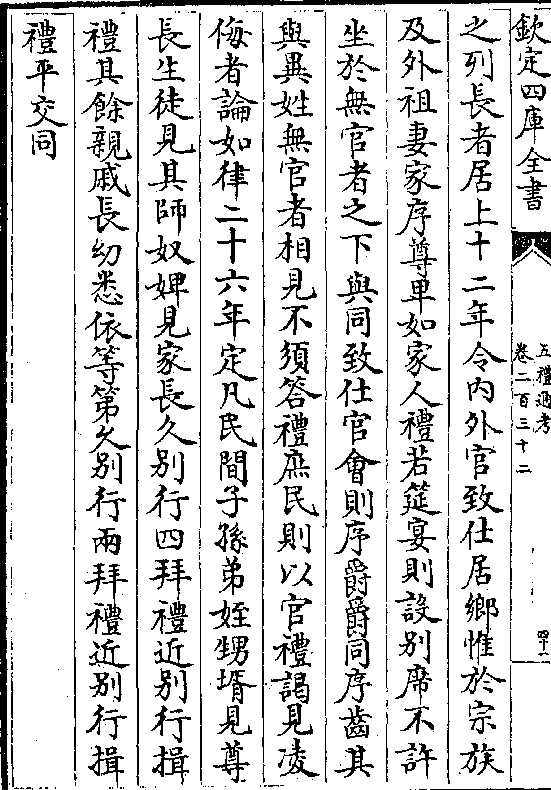 欽定四庫全書
五禮通考
卷二百三十二
四十一
之列長者居上十二年令內外官致仕居鄉惟於宗族
及外祖妻家序尊卑如家人禮若筵宴則設別席不許
坐於無官者之下與同致仕官會則序爵爵同序齒其
與異姓無官者相見不須答禮庶民則以官禮謁見凌
侮者論如律二十六年定凡民間子孫弟姪甥壻見尊
長生徒見其師奴婢見家長久別行四拜禮近別行揖
禮其餘親戚長幼悉依等第久別行兩拜禮近別行揖
禮平交同